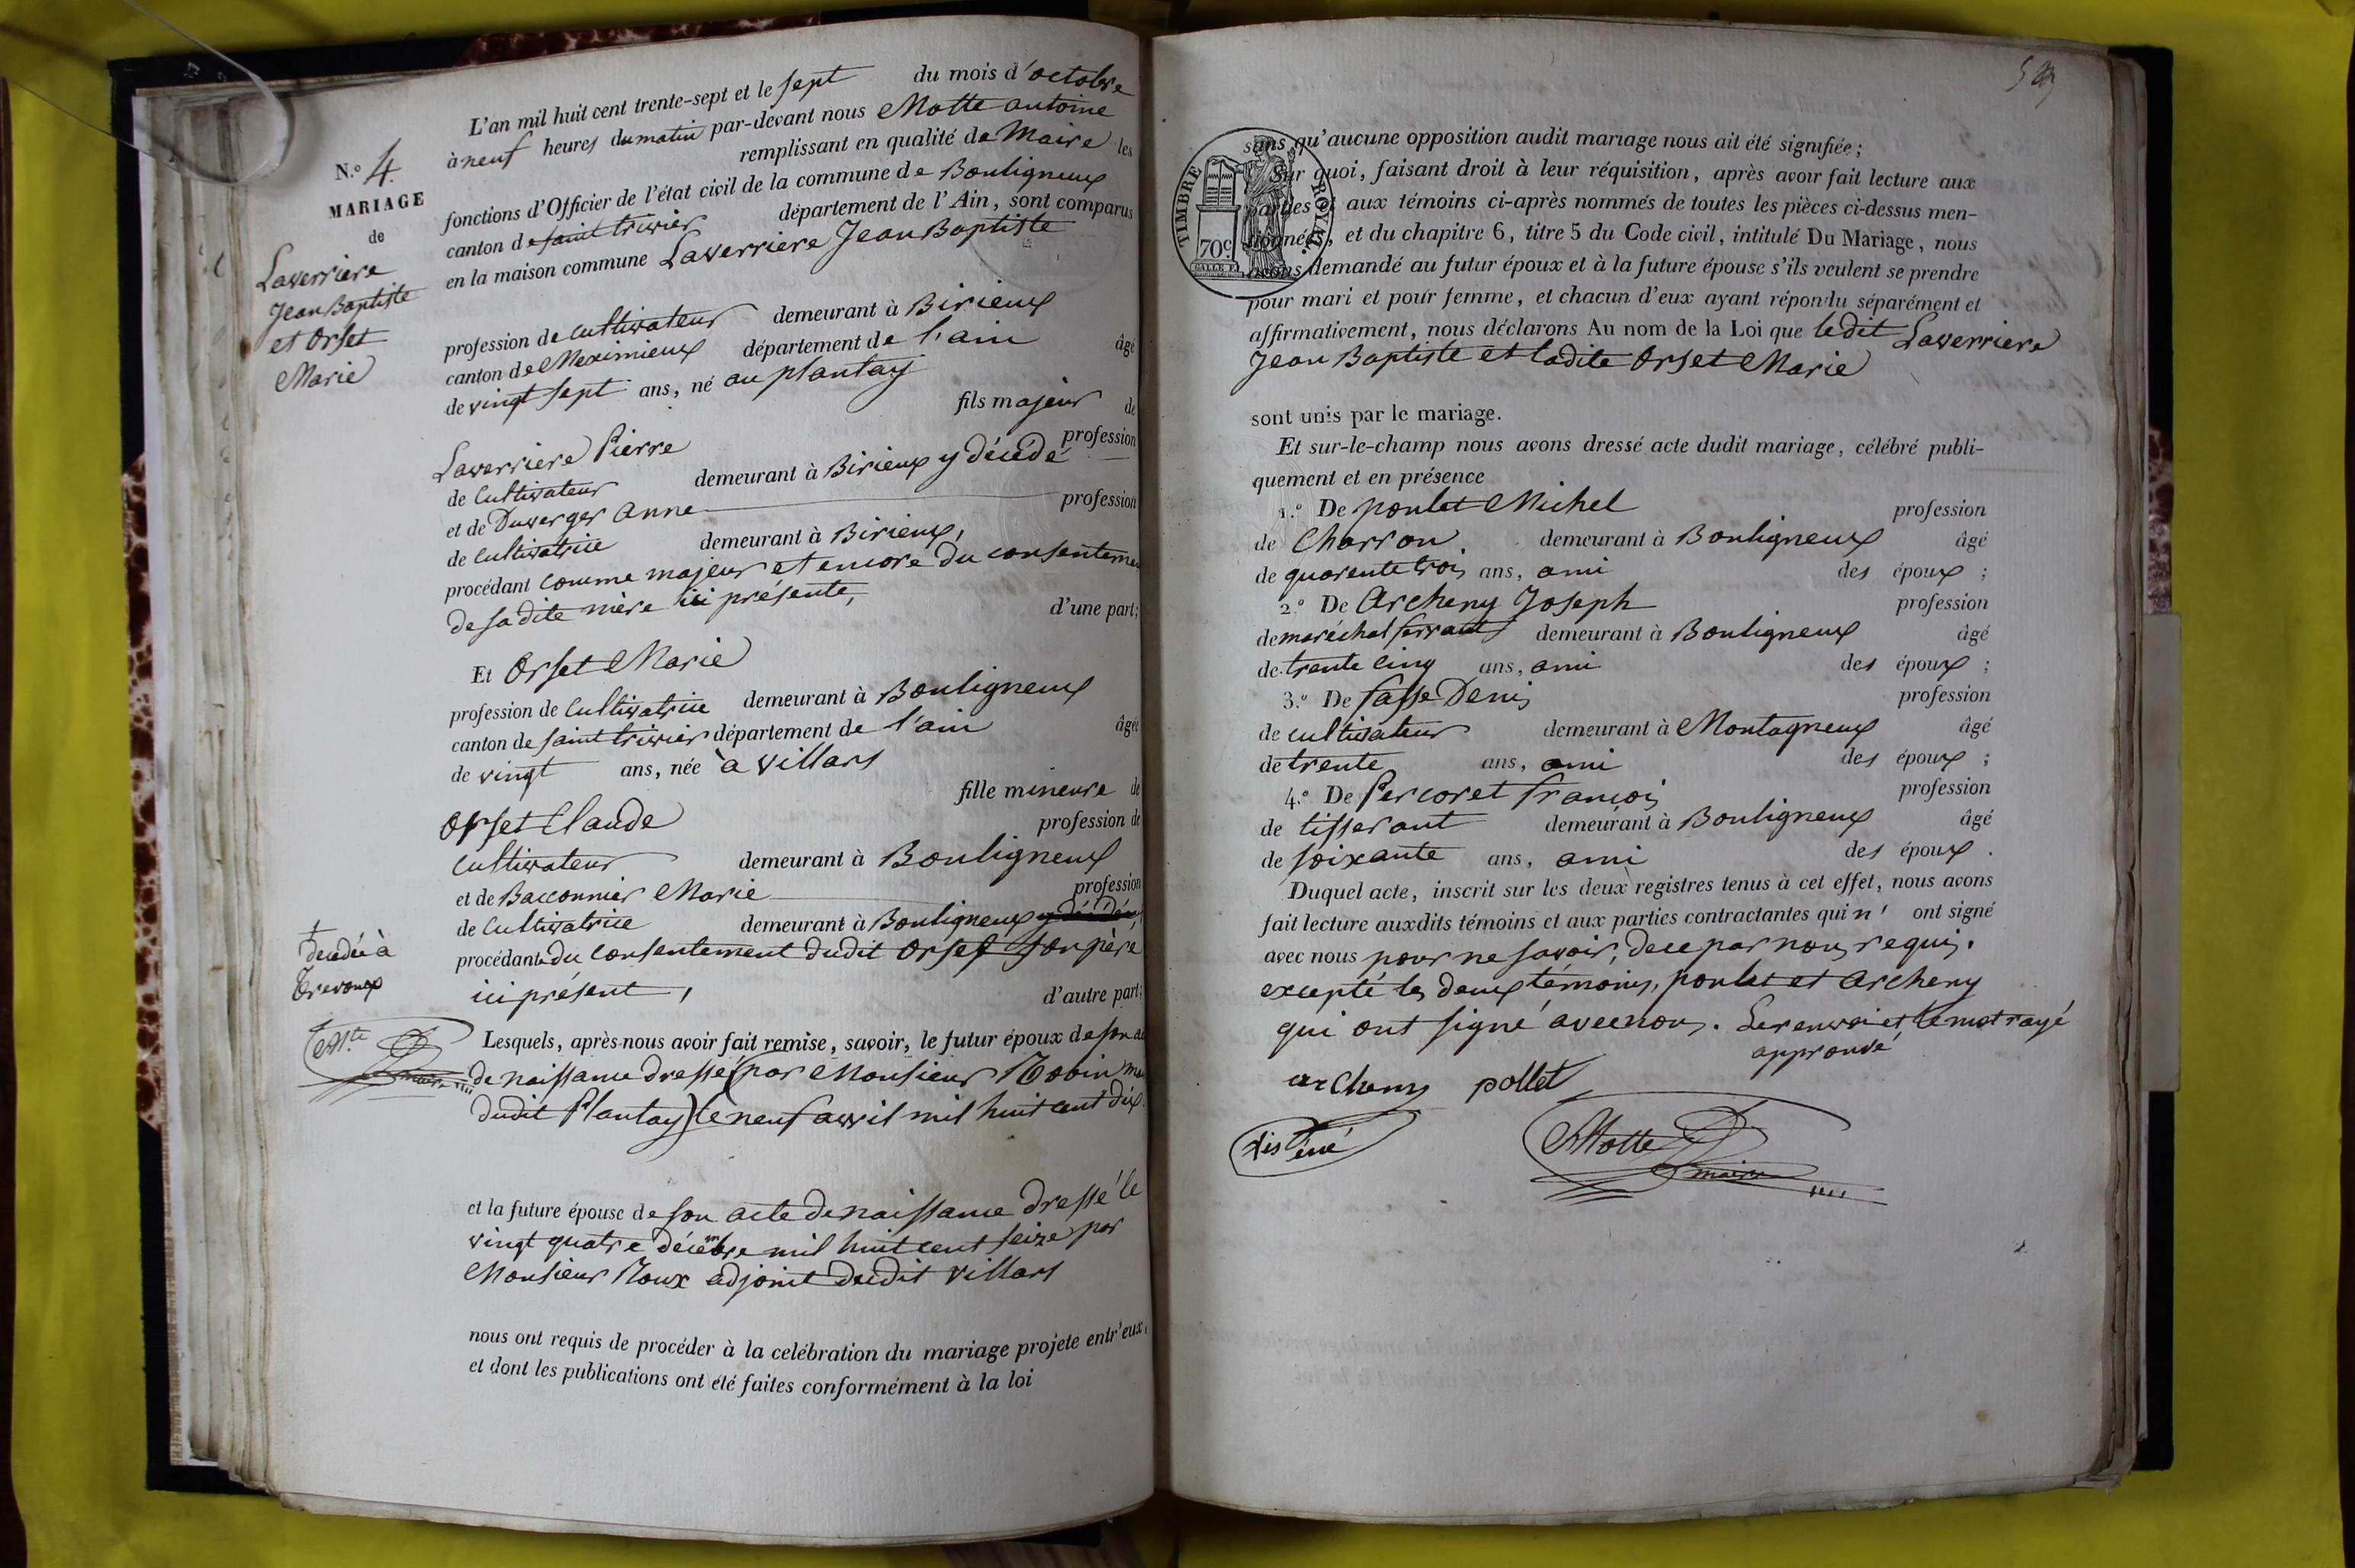 L'an mil huit cent trente-sept et le sept du mois d'octobre
à neuf heures du matin par-devant nous Motte antoine
remplissant en qualité de Maire les
fonctions d'Officier de l'état civil de la commune de Bouligneux
canton de saint trivier département de l'Ain, sont comparus
en la maison commune Laverriere Jean Baptiste
N.º 4.
MARIAGE
de
Laverriere
Jean Baptiste
et Orset
Marie
profession de cultivateur demeurant à Birieux
canton de Meximieux département de l'ain âgé
de vingt sept ans, né au plantay
fils majeur de
Laverriere Pierre profession
de Cultivateur demeurant à Birieux y décédé
et de Duverger Anne profession
de cultivatrice demeurant à Birieux,
procédant comme majeur et encore du consenteme
de sa dite mère ici présente, d'une part;
Et Orset Marie
profession de Cultivatrice demeurant à Bouligneux
canton de saint trivier département de l'ain âgée
de vingt ans, née à villars
fille mineure de
Orset Claude profession de
Cultivateur demeurant à Bouligneux
et de Bacconnier Marie profession
de Cultivatrice demeurant à Bouligneux
procédant du consentement dudit Orset son père
ici présent, d'autre part;
décédée à
Trevoux
Mtte
maire
Lesquels, après nous avoir fait remise, savoir, le futur époux de son ac
de naissance dressé (par Monsieur Robin ma
dudit Plantay) le neuf avril mil huit cent dix
et la future épouse de son acte de naissance dressé le
vingt quatre décembre mil huit cent seize par
Monsieur Roux adjoint dudit villars
nous ont requis de procéder à la celébration du mariage projeté entr'eux,
et dont les publications ont été faites conformément à la loi
TIMBRE ROYAL
70c
sans qu'aucune opposition audit mariage nous ait été signifiée;
Sur quoi, faisant droit à leur réquisition, après avoir fait lecture aux
parties et aux témoins ci-après nommés de toutes les pièces ci-dessus men-
tionnées, et du chapitre 6, titre 5 du Code civil, intitulé Du Mariage, nous
avons demandé au futur époux et à la future épouse s'ils veulent se prendre
pour mari et pour femme, et chacun d'eux ayant répondu séparément et
affirmativement, nous déclarons Au nom de la Loi que ledit Laverriere
Jean Baptiste et ladite Orset Marie
sont unis par le mariage.
Et sur-le-champ nous avons dressé acte dudit mariage, célébré publi-
quement et en présence
1.º De poulet Michel profession
de Charron demeurant à Bouligneux âgé
de quarente trois ans, ami des époux;
2.º De Archeny Joseph profession
de maréchal ferrant demeurant à Bouligneux âgé
de trente cinq ans, ami des époux;
3.º De fasse Denis profession
de cultivateur demeurant à Montagneux âgé
de trente ans, ami des époux;
4.º De Percoret françois profession
de tisserant demeurant à Bouligneux âgé
de soixante ans, ami des époux.
Duquel acte, inscrit sur les deux registres tenus à cet effet, nous avons
fait lecture auxdits témoins et aux parties contractantes qui n' ont signé
avec nous pour ne savoir, de ce par nous requis.
excepté les deux témoins, poulet et Archeny
qui ont signé avec nous. Le renvoi et le mot rayé
approuvé
archeny pollet
Motte
maire